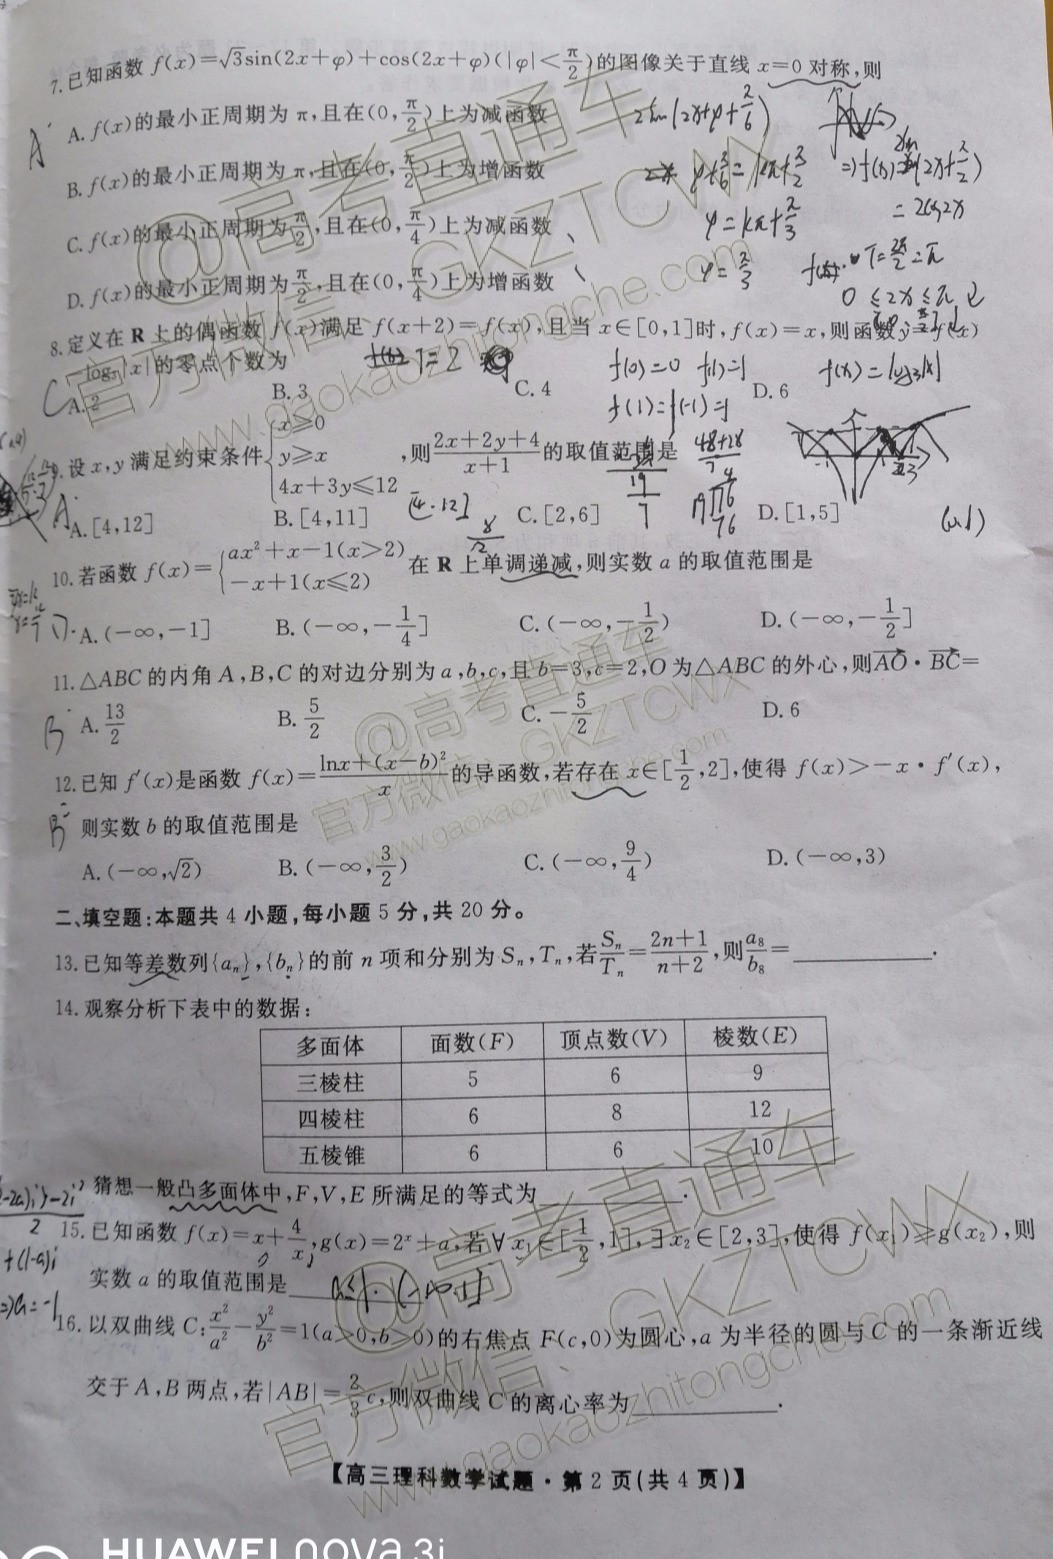 7.已知函数 f(x)=√3sin(2x+φ)+cos(2x+φ)(|φ|<π/2)的图像关于直线 x=0 对称,则
A. f(x)的最小正周期为 π,且在(0,π/2)上为减函数
B. f(x)的最小正周期为 π,且在(0,π/2)上为增函数
C. f(x)的最小正周期为π/2,且在(0,π/4)上为减函数
D. f(x)的最小正周期为π/2,且在(0,π/4)上为增函数
A
2sin(2x+φ+π/6)
φ+π/6=kπ+π/2
φ=kπ+π/3
φ=π/3
=2cos2x
T=2π/2=π
0≤2x≤π
8.定义在 R 上的偶函数 f(x)满足 f(x+2)=f(x),且当 x∈[0,1]时,f(x)=x,则函数 y=f(x)
-log₃|x|的零点个数为
T=2
f(0)=0 f(1)=1
f(1)=f(-1)=1
f(x)=log3|x|
C
A. 2 B. 3 C. 4 D. 6
9.设 x,y 满足约束条件{x≥0 y≥x 4x+3y≤12 ,则(2x+2y+4)/(x+1)的取值范围是
A
A. [4,12] B. [4,11] C. [2,6] D. [1,5]
[4,12]
10.若函数 f(x)={ax²+x-1(x>2) -x+1(x≤2) 在 R 上单调递减,则实数 a 的取值范围是
A. (-∞,-1] B. (-∞,-1/4] C. (-∞,-1/2) D. (-∞,-1/2]
11.△ABC 的内角 A,B,C 的对边分别为 a,b,c,且 b=3,c=2,O 为△ABC 的外心,则AO·BC=
B
A. 13/2 B. 5/2 C. -5/2 D. 6
12.已知 f′(x)是函数 f(x)=(lnx+(x-b)²)/x的导函数,若存在 x∈[1/2,2],使得 f(x)>-x·f′(x),
B
则实数 b 的取值范围是
A. (-∞,√2) B. (-∞,3/2) C. (-∞,9/4) D. (-∞,3)
二、填空题:本题共 4 小题,每小题 5 分,共 20 分。
13.已知等差数列{aₙ},{bₙ}的前 n 项和分别为 Sₙ,Tₙ,若Sₙ/Tₙ=(2n+1)/(n+2),则a₈/b₈=________.
14.观察分析下表中的数据:
多面体 面数(F) 顶点数(V) 棱数(E)
三棱柱 5 6 9
四棱柱 6 8 12
五棱锥 6 6 10
猜想一般凸多面体中,F,V,E 所满足的等式为________.
15.已知函数 f(x)=x+4/x,g(x)=2ˣ+a,若∀x₁∈[1/2,1],∃x₂∈[2,3],使得 f(x₁)≥g(x₂),则
实数 a 的取值范围是________
a≤1. (-∞,1]
+(1-a)i
=>a=-1
16.以双曲线 C:x²/a²-y²/b²=1(a>0,b>0)的右焦点 F(c,0)为圆心,a 为半径的圆与 C 的一条渐近线
交于 A,B 两点,若|AB|=2/3c,则双曲线 C 的离心率为________.
【高三理科数学试题·第 2 页(共 4 页)】
@高考直通车
官方微信:GKZTCWX
www.gaokaozhitongche.com
@高考直通车
官方微信:GKZTCWX
www.gaokaozhitongche.com
@高考直通车
官方微信:GKZTCWX
www.gaokaozhitongche.com
HUAWEI nova 3i